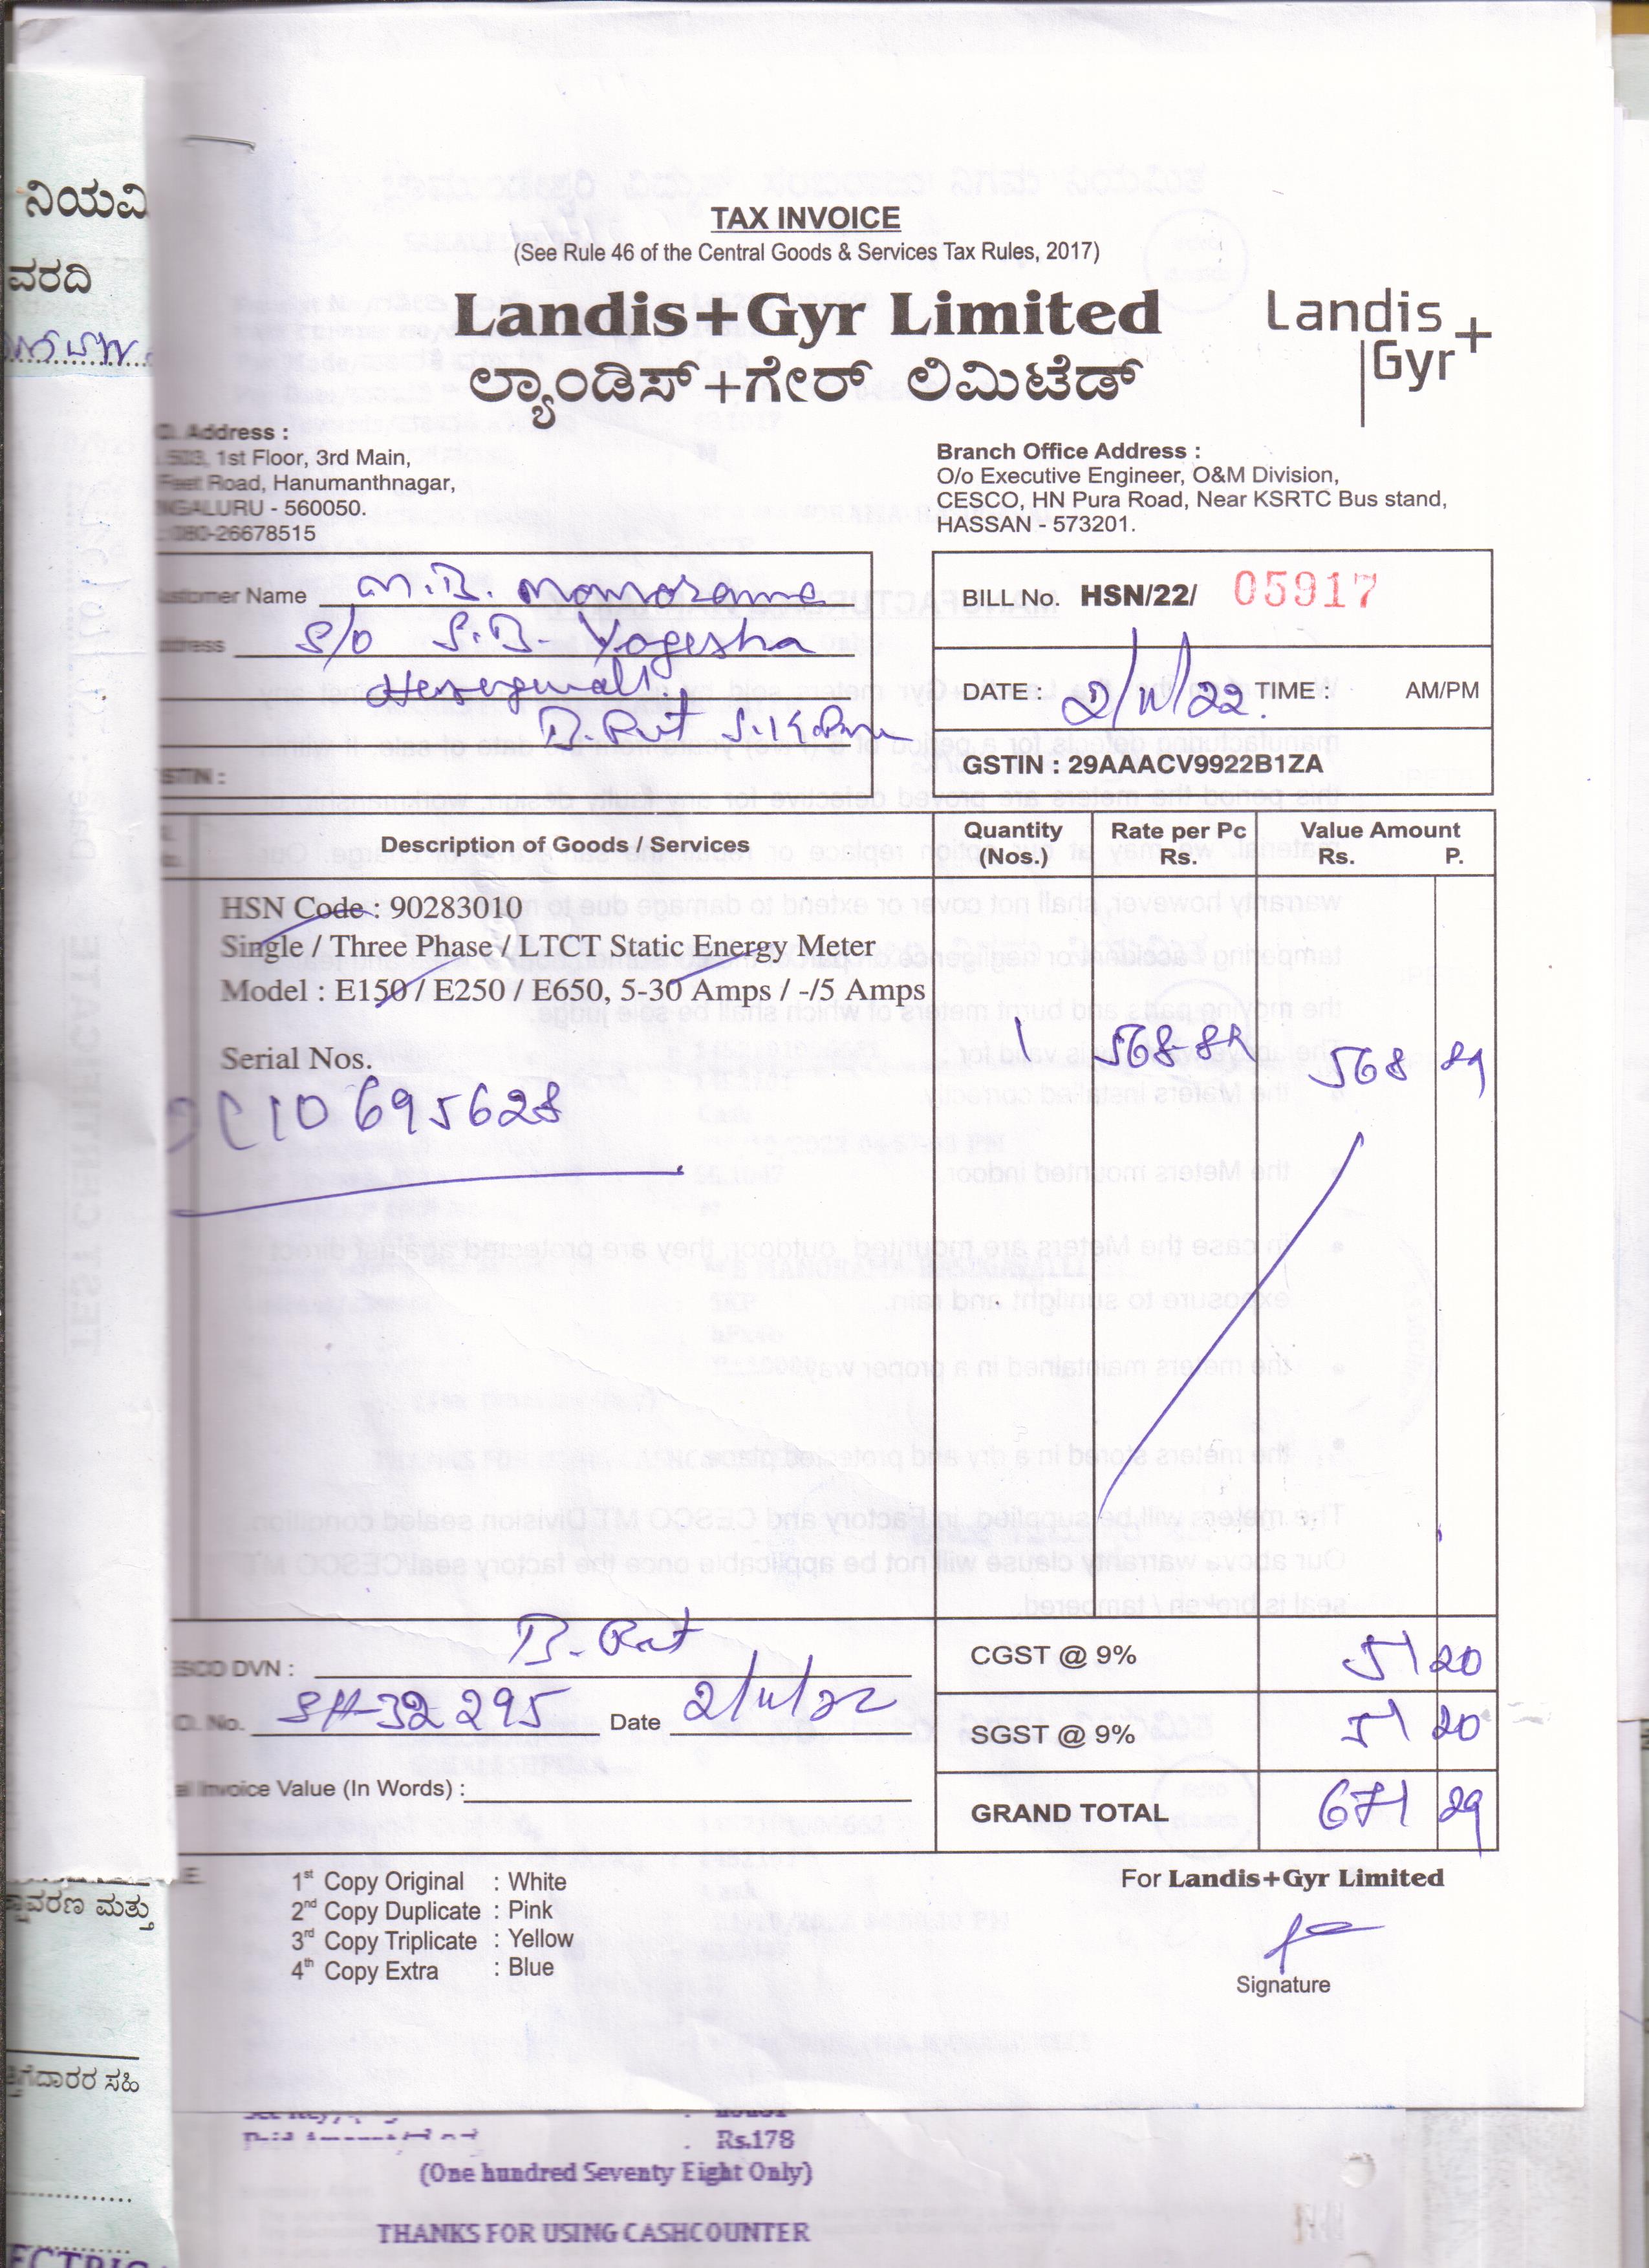 ನಿಯವಿ
ವರದಿ
TAX INVOICE
(See Rule 46 of the Central Goods & Services Tax Rules, 2017)
Landis+Gyr Limited
ಲ್ಯಾಂಡಿಸ್+ಗೇರ್ ಲಿಮಿಟೆಡ್
Landis
Gyr+
Address :
503, 1st Floor, 3rd Main,
Feet Road, Hanumanthnagar,
NGALURU - 560050.
: 080-26678515
Branch Office Address :
O/o Executive Engineer, O&M Division,
CESCO, HN Pura Road, Near KSRTC Bus stand,
HASSAN - 573201.
ustomer Name M.B. Manorama
dress S/o S.B. Yogesha
B.Put S.K.Pura
STIN :
BILL No. HSN/22/ 05917
DATE : 2/11/22. TIME : AM/PM
GSTIN : 29AAACV9922B1ZA
Description of Goods / Services Quantity (Nos.) Rate per Pc Rs. Value Amount Rs. P.
HSN Code : 90283010
Single / Three Phase / LTCT Static Energy Meter
Model : E150 / E250 / E650, 5-30 Amps / -/5 Amps
1 568-89 568 89
Serial Nos.
C10695628
ESCO DVN : B.Put
O. No. SH-32295 Date 2/11/22
al Invoice Value (In Words) :
CGST @ 9% 51 20
SGST @ 9% 51 20
GRAND TOTAL 671 29
1st Copy Original : White
2nd Copy Duplicate : Pink
3rd Copy Triplicate : Yellow
4th Copy Extra : Blue
For Landis+Gyr Limited
Signature
ಾವರಣ ಮತ್ತು
ತಿಗೆದಾರರ ಸಹಿ
Rs.178
(One hundred Seventy Eight Only)
THANKS FOR USING CASHCOUNTER
ECTRIC